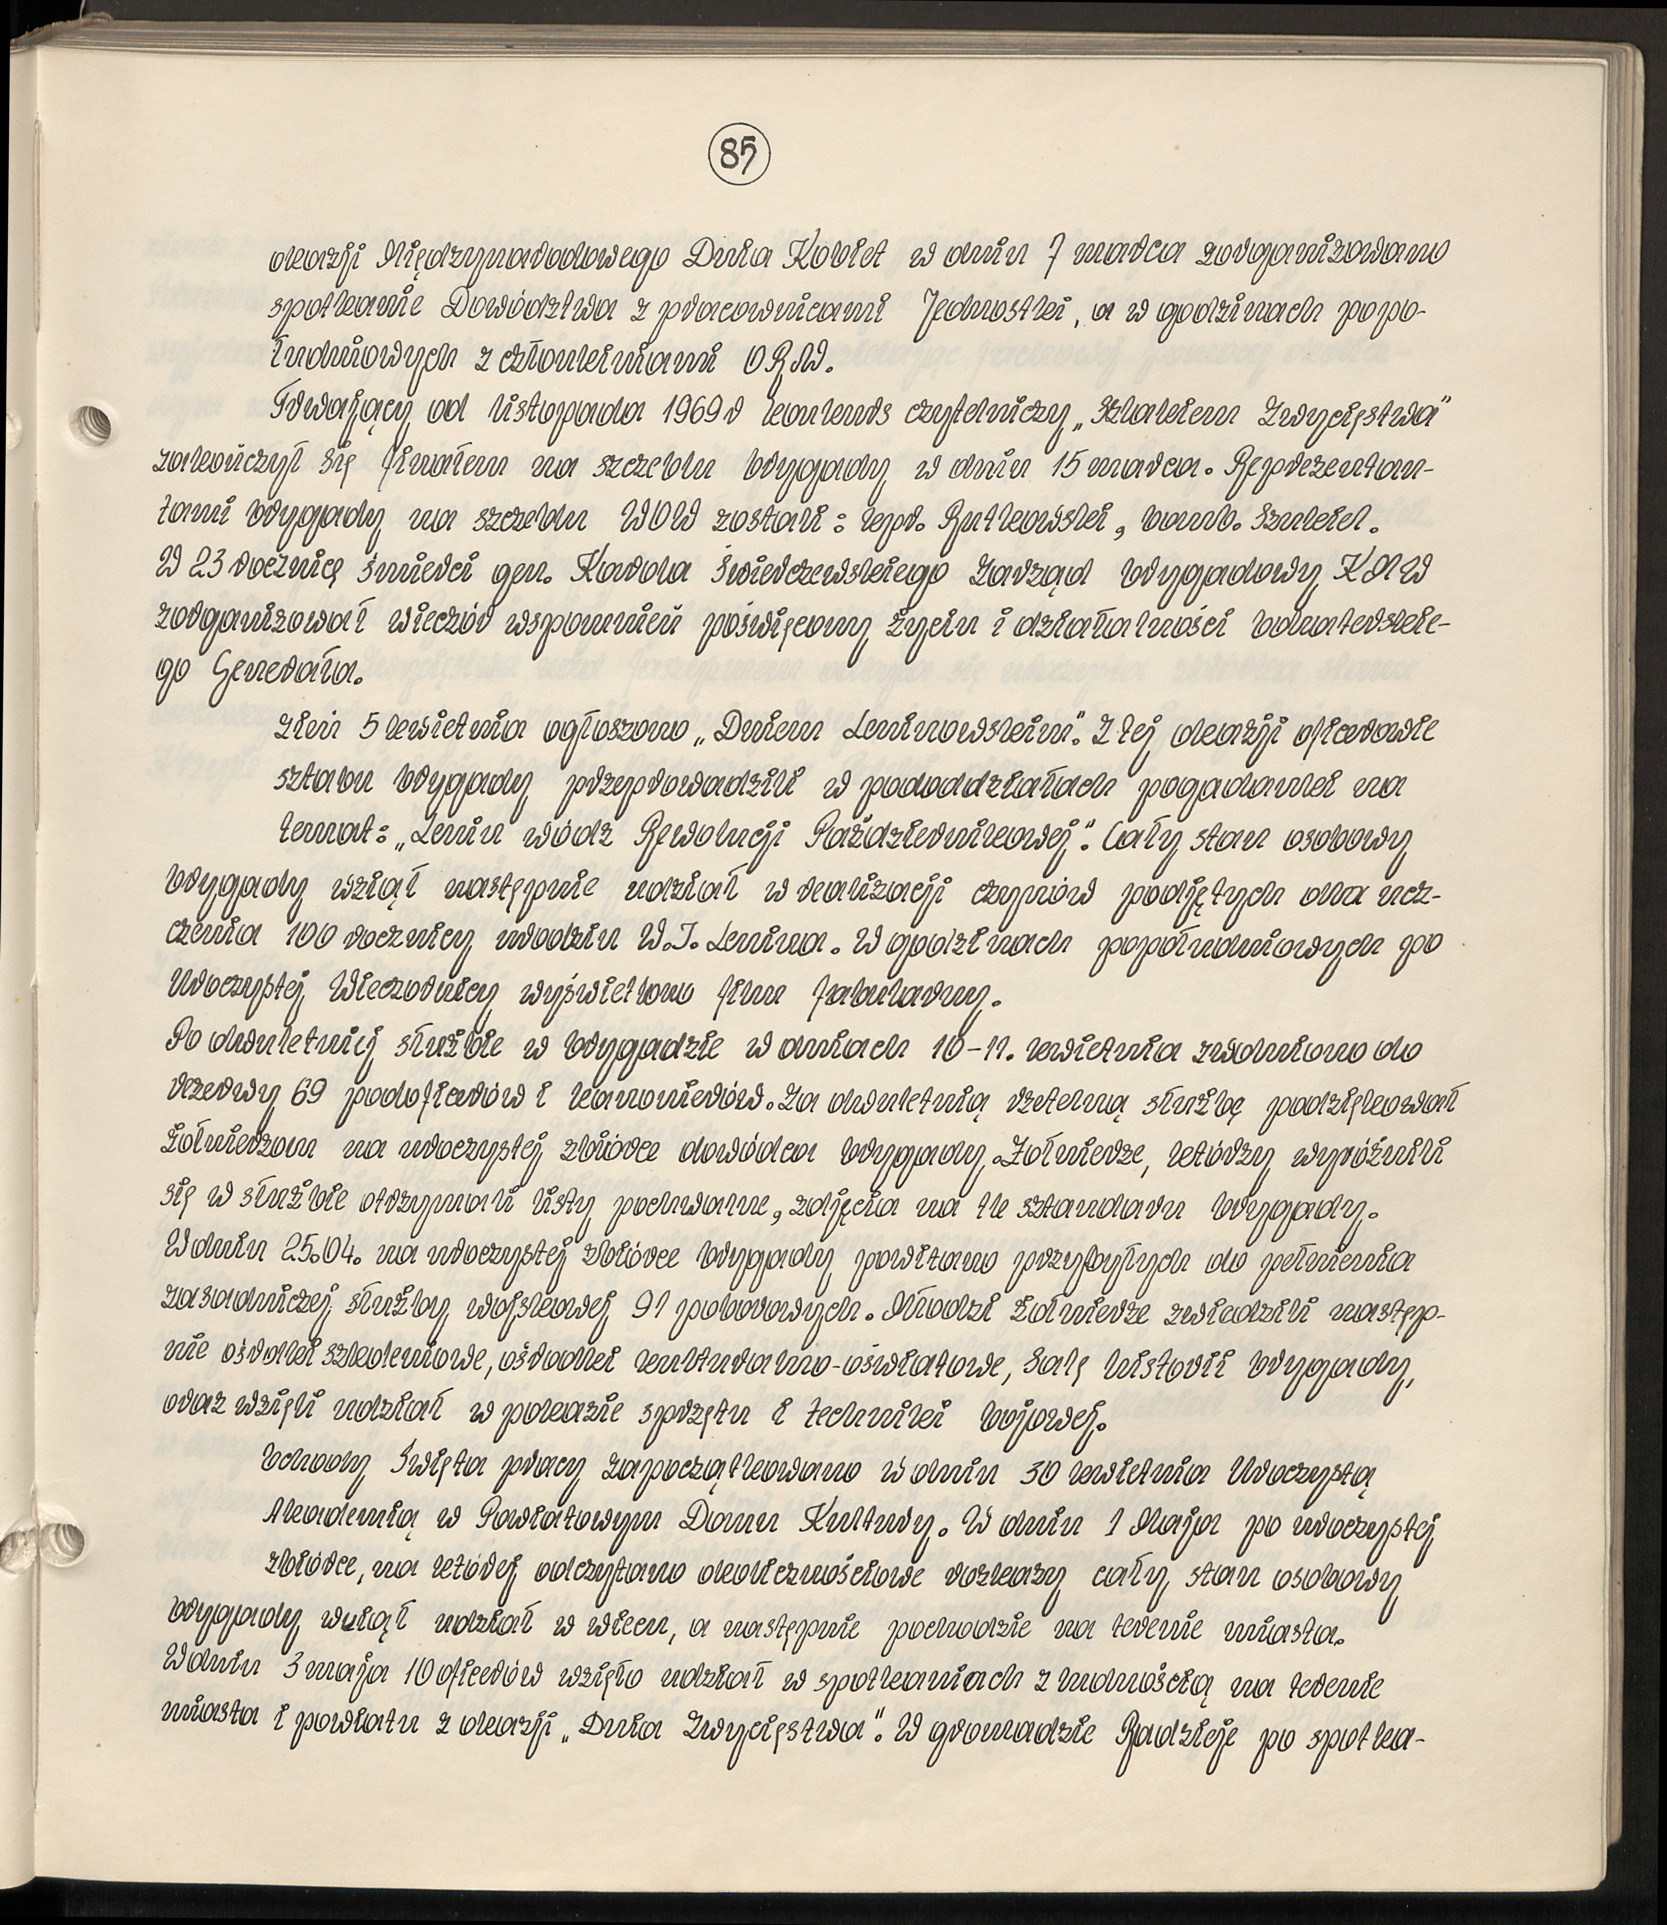 85
okazji Międzynarodowego Dnia Kobiet w dniu 7 marca zorganizowano
spotkanie Dowództwa z pracownicami Jednostki, a w godzinach popo-
łudniowych z członkiniami ORW.
Trwający od listopada 1969 r konkurs czytelniczy „Szlakiem Zwycięstwa"
zakończył się finałem na szczeblu brygady w dniu 15 marca. Reprezentan-
tami brygady na szczeblu WOW zostali: kpr. Rutkowski, bomb. Szulkil.
W 23 rocznicę śmierci gen. Karola Świerczewskiego Zarząd brygadowy KMW
zorganizował wieczór wspomnień poświęcony życiu i działalności bohaterskie-
go Generała.
Dzień 5 kwietnia ogłoszono „Dniem Leninowskim". Z tej okazji oficerowie
sztabu brygady przeprowadzili w pododdziałach pogadanki na
temat: „Lenin wódz Rewolucji Październikowej". Cały stan osobowy
brygady wziął następnie udział w realizacji czynów podjętych dla ucz-
czenia 100 rocznicy urodzin W.I. Lenina. W godzinach popołudniowych po
Uroczystej Wieczornicy wyświetlono film fabularny.
Po dwuletniej służbie w brygadzie w dniach 10-11. kwietnia zwolniono do
rezerwy 69 podoficerów i kanonierów. Za dwuletnią rzetelną służbę podziękował
żołnierzom na uroczystej zbiórce dowódca brygady. Żołnierze, którzy wyróżnili
się w służbie otrzymali listy pochwalne, zdjęcia na tle sztandaru brygady.
W dniu 25.04. na uroczystej zbiórce brygady powitano przybyłych do pełnienia
zasadniczej służby wojskowej 91 poborowych. Młodzi żołnierze zwiedzili następ-
nie ośrodki szkoleniowe, ośrodki kulturalno-oświatowe, salę historii brygady,
oraz wzięli udział w pokazie sprzętu i techniki bojowej.
Obchody Święta pracy zapoczątkowano w dniu 30 kwietnia Uroczystą
Akademią w Powiatowym Domu Kultury. W dniu 1 Maja po uroczystej
zbiórce, na której odczytano okolicznościowe rozkazy cały stan osobowy
brygady wziął udział w wiecu, a następnie pochodzie na terenie miasta.
W dniu 3 maja 10 oficerów wzięło udział w spotkaniach z ludnością na terenie
miasta i powiatu z okazji „Dnia Zwycięstwa". W gromadzie Radzieje po spotka-